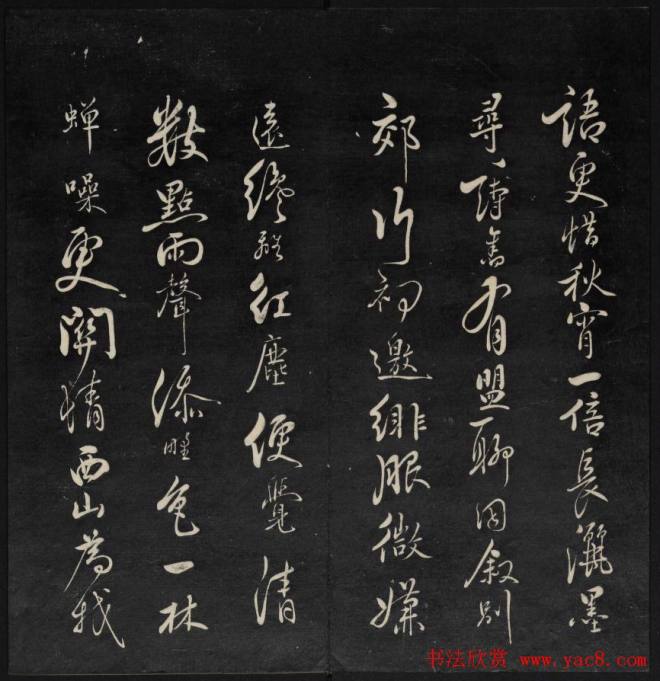 語更惜秋宵一倍長灑墨
尋詩舊有盟聊因敘別
郊行初邀緋服微嫌
遠纔離紅塵便覺清
數點雨聲添野色一林
蟬噪更關情西山為我
书法欣赏 www.yac8.com